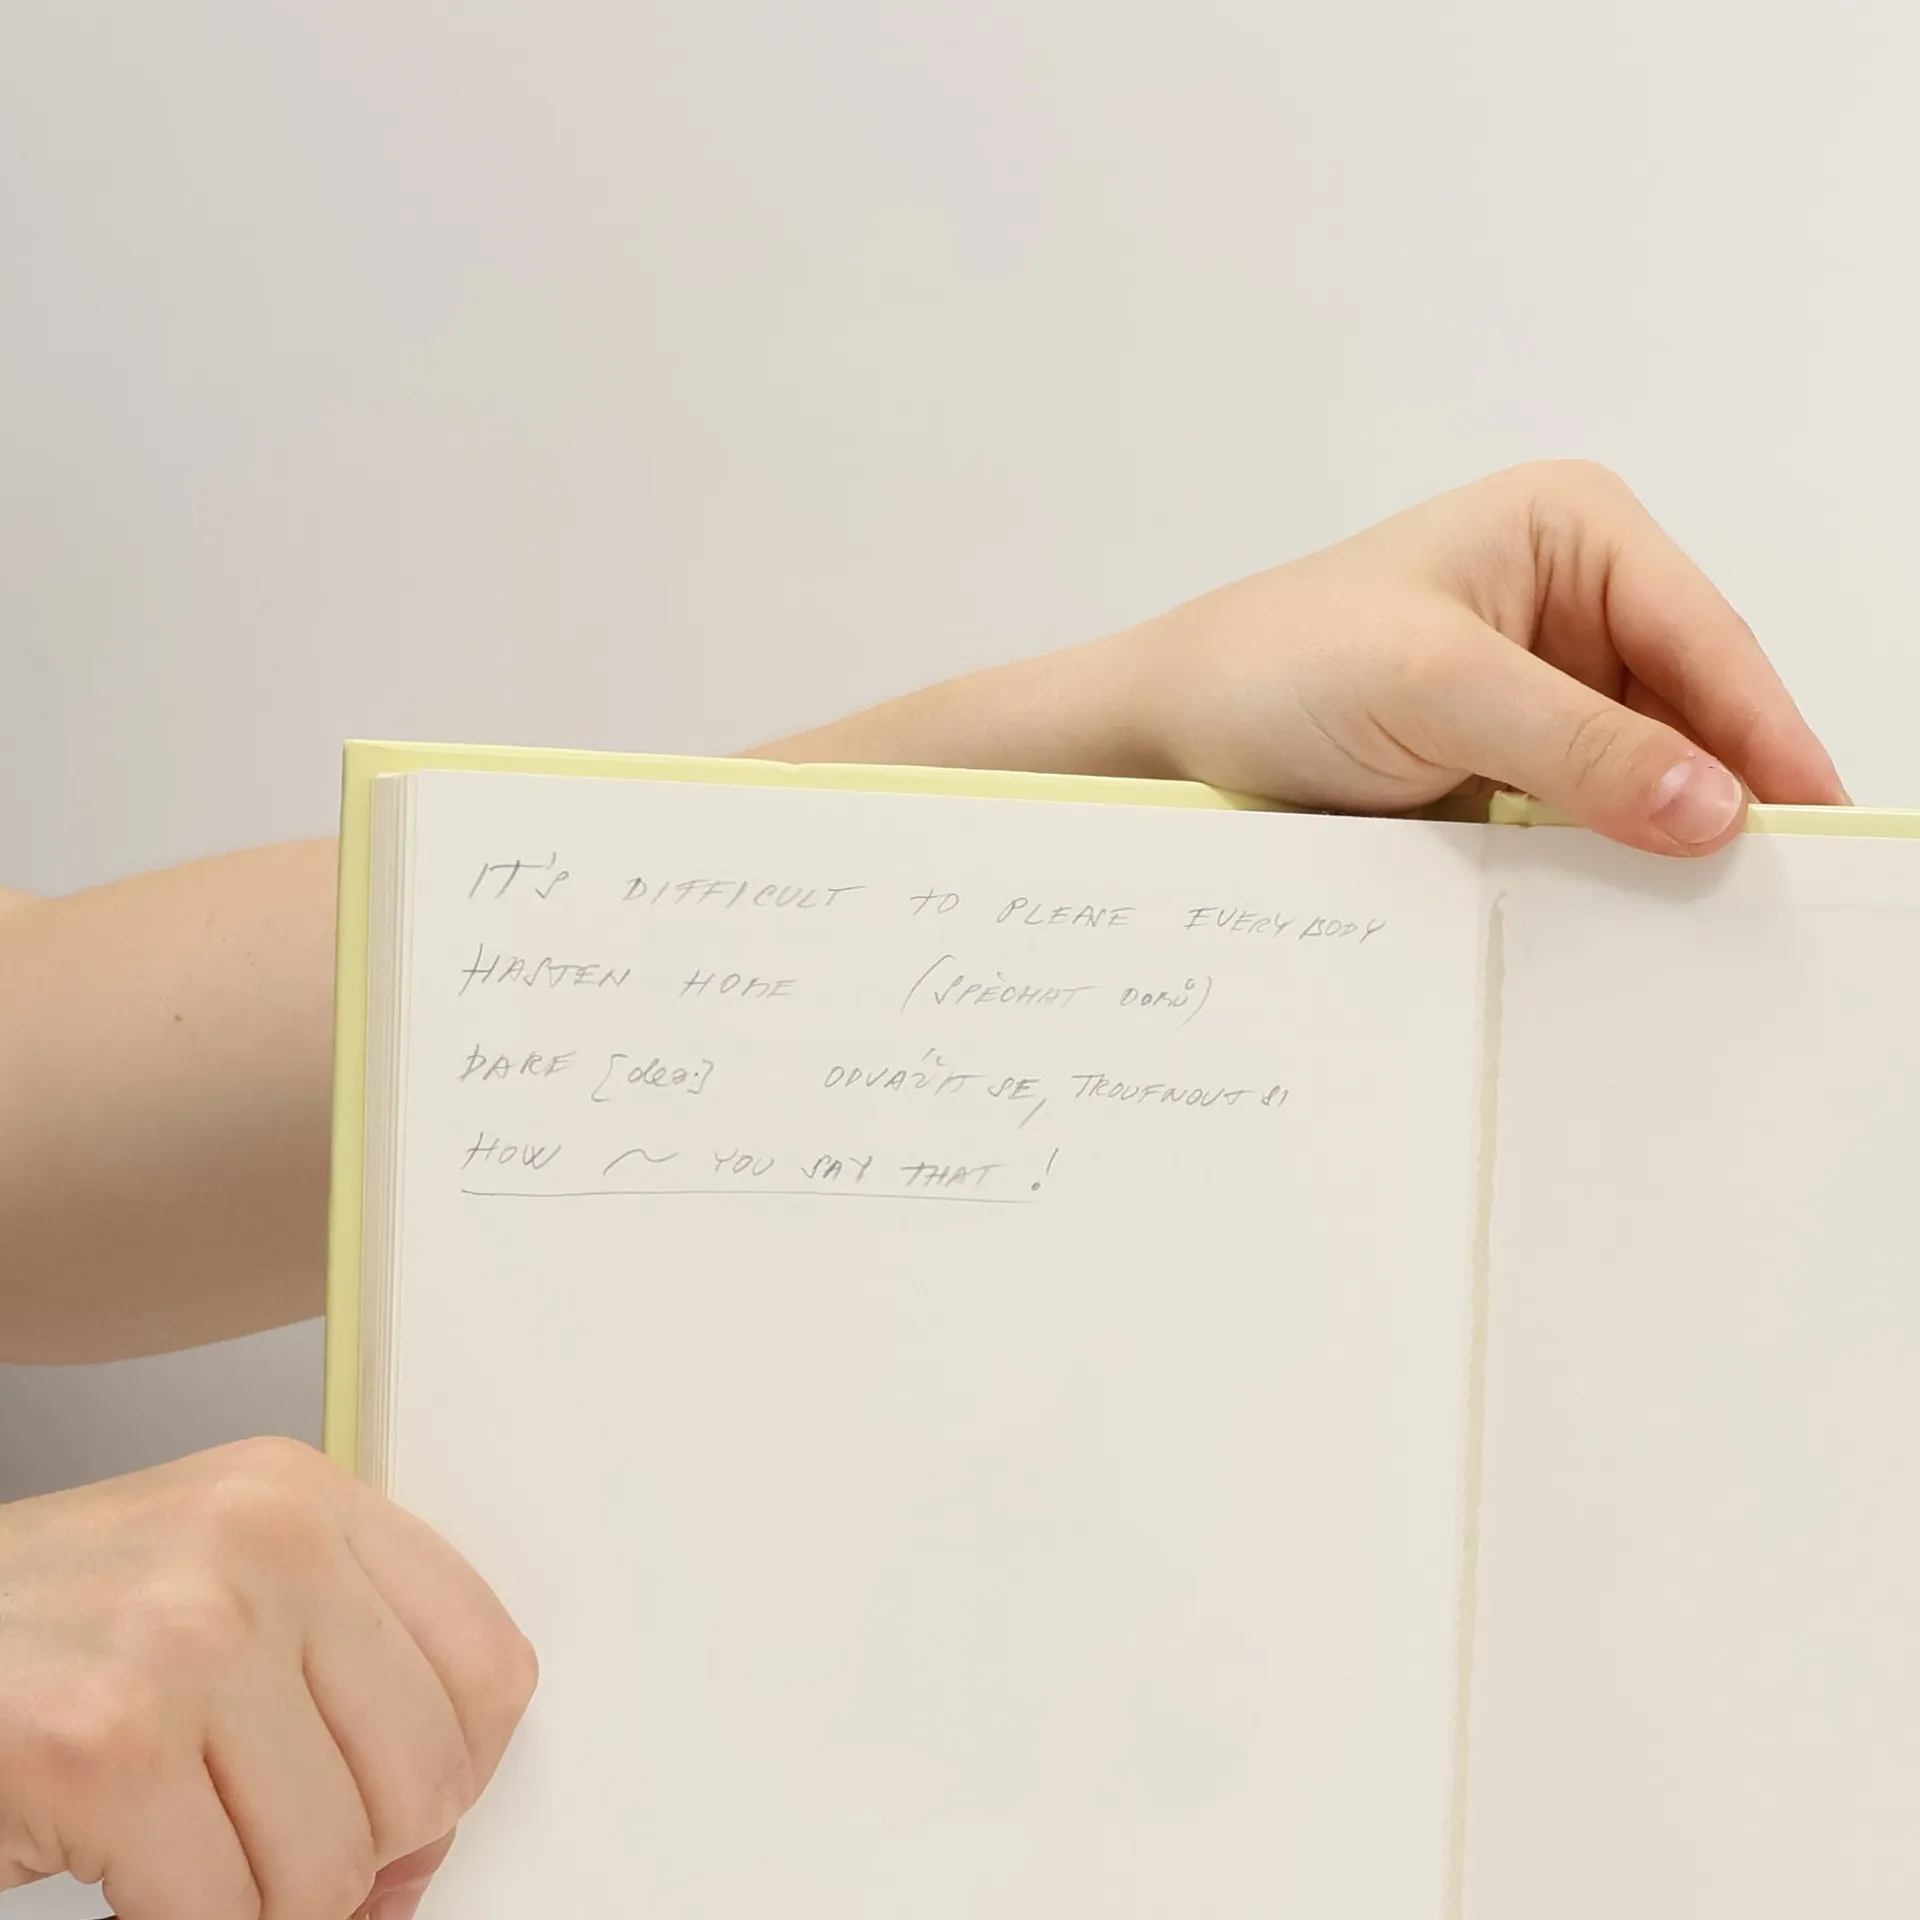 IT'S DIFFICULT TO PLEASE EVERYBODY
HASTEN HOME (SPĚCHAT DOMŮ)
DARE [deə:] ODVÁŽIT SE, TROUFNOUT SI
HOW ~ YOU SAY THAT!